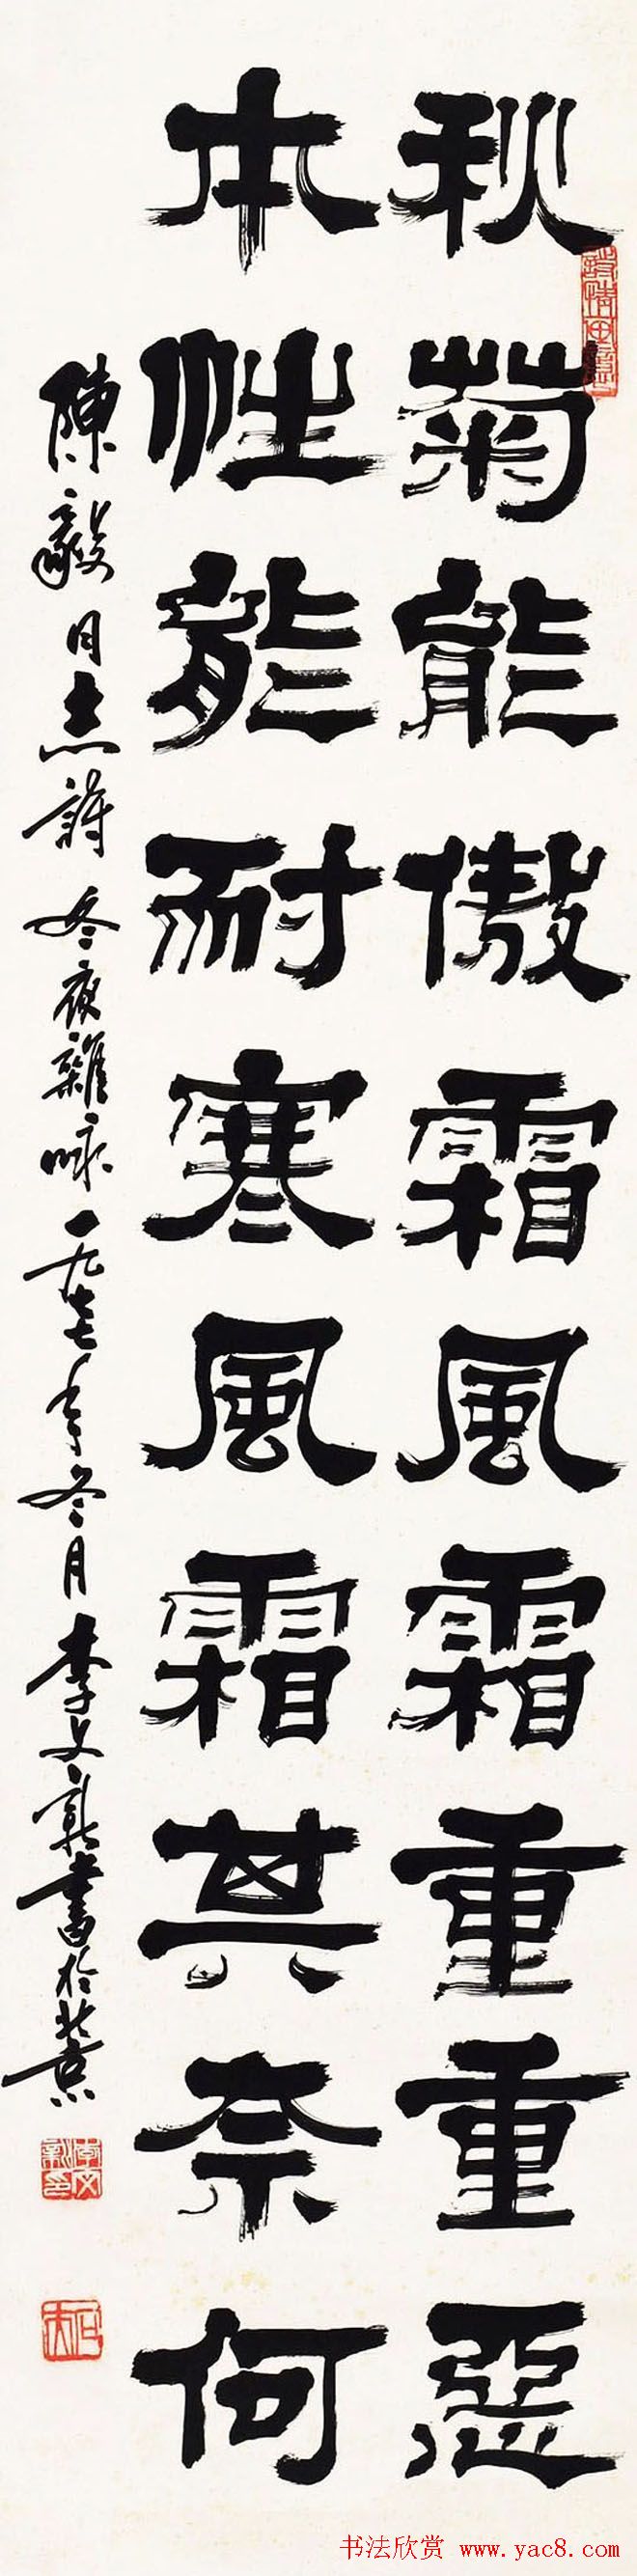 秋菊能傲霜風霜重重惡
本性能耐寒風霜其奈何
陳毅同志詩冬夜雜咏一九七七年冬月李文新書於北京
李文新印
书法欣赏 www.yac8.com